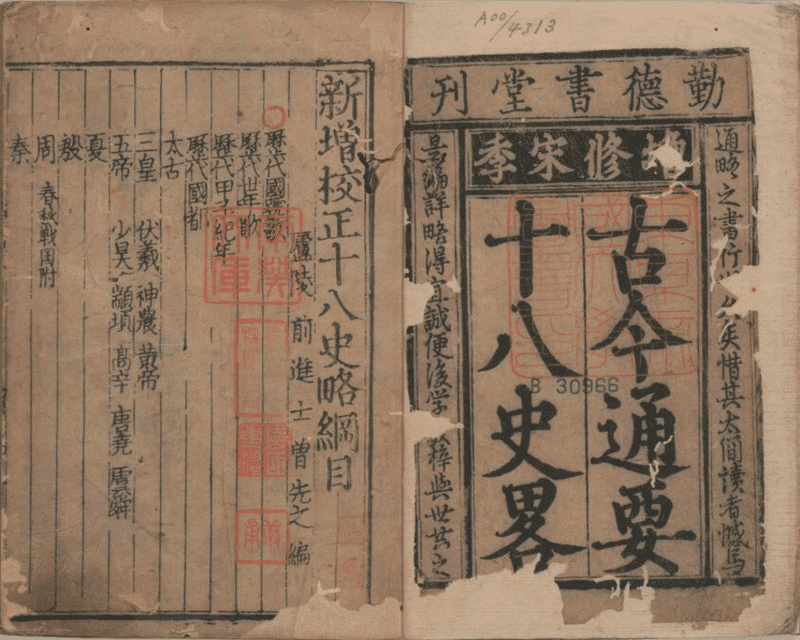 A00/4313
勤德書堂刊
增修宋季
通略之書行世久矣惜其太簡讀者憾焉
古今通要
十八史畧
是編詳略得宜誠便後学 梓與世共之
B 30966
新增校正十八史略綱目
廬陵 前進士曽先之編
歷代國號歌
歷代世年歌
歷代甲子紀年
歷代國都
太古
三皇 伏羲 神農 黄帝
五帝 少昊 顓頊 高辛 唐堯 虞舜
夏
殷
周 春秋戰国附
秦